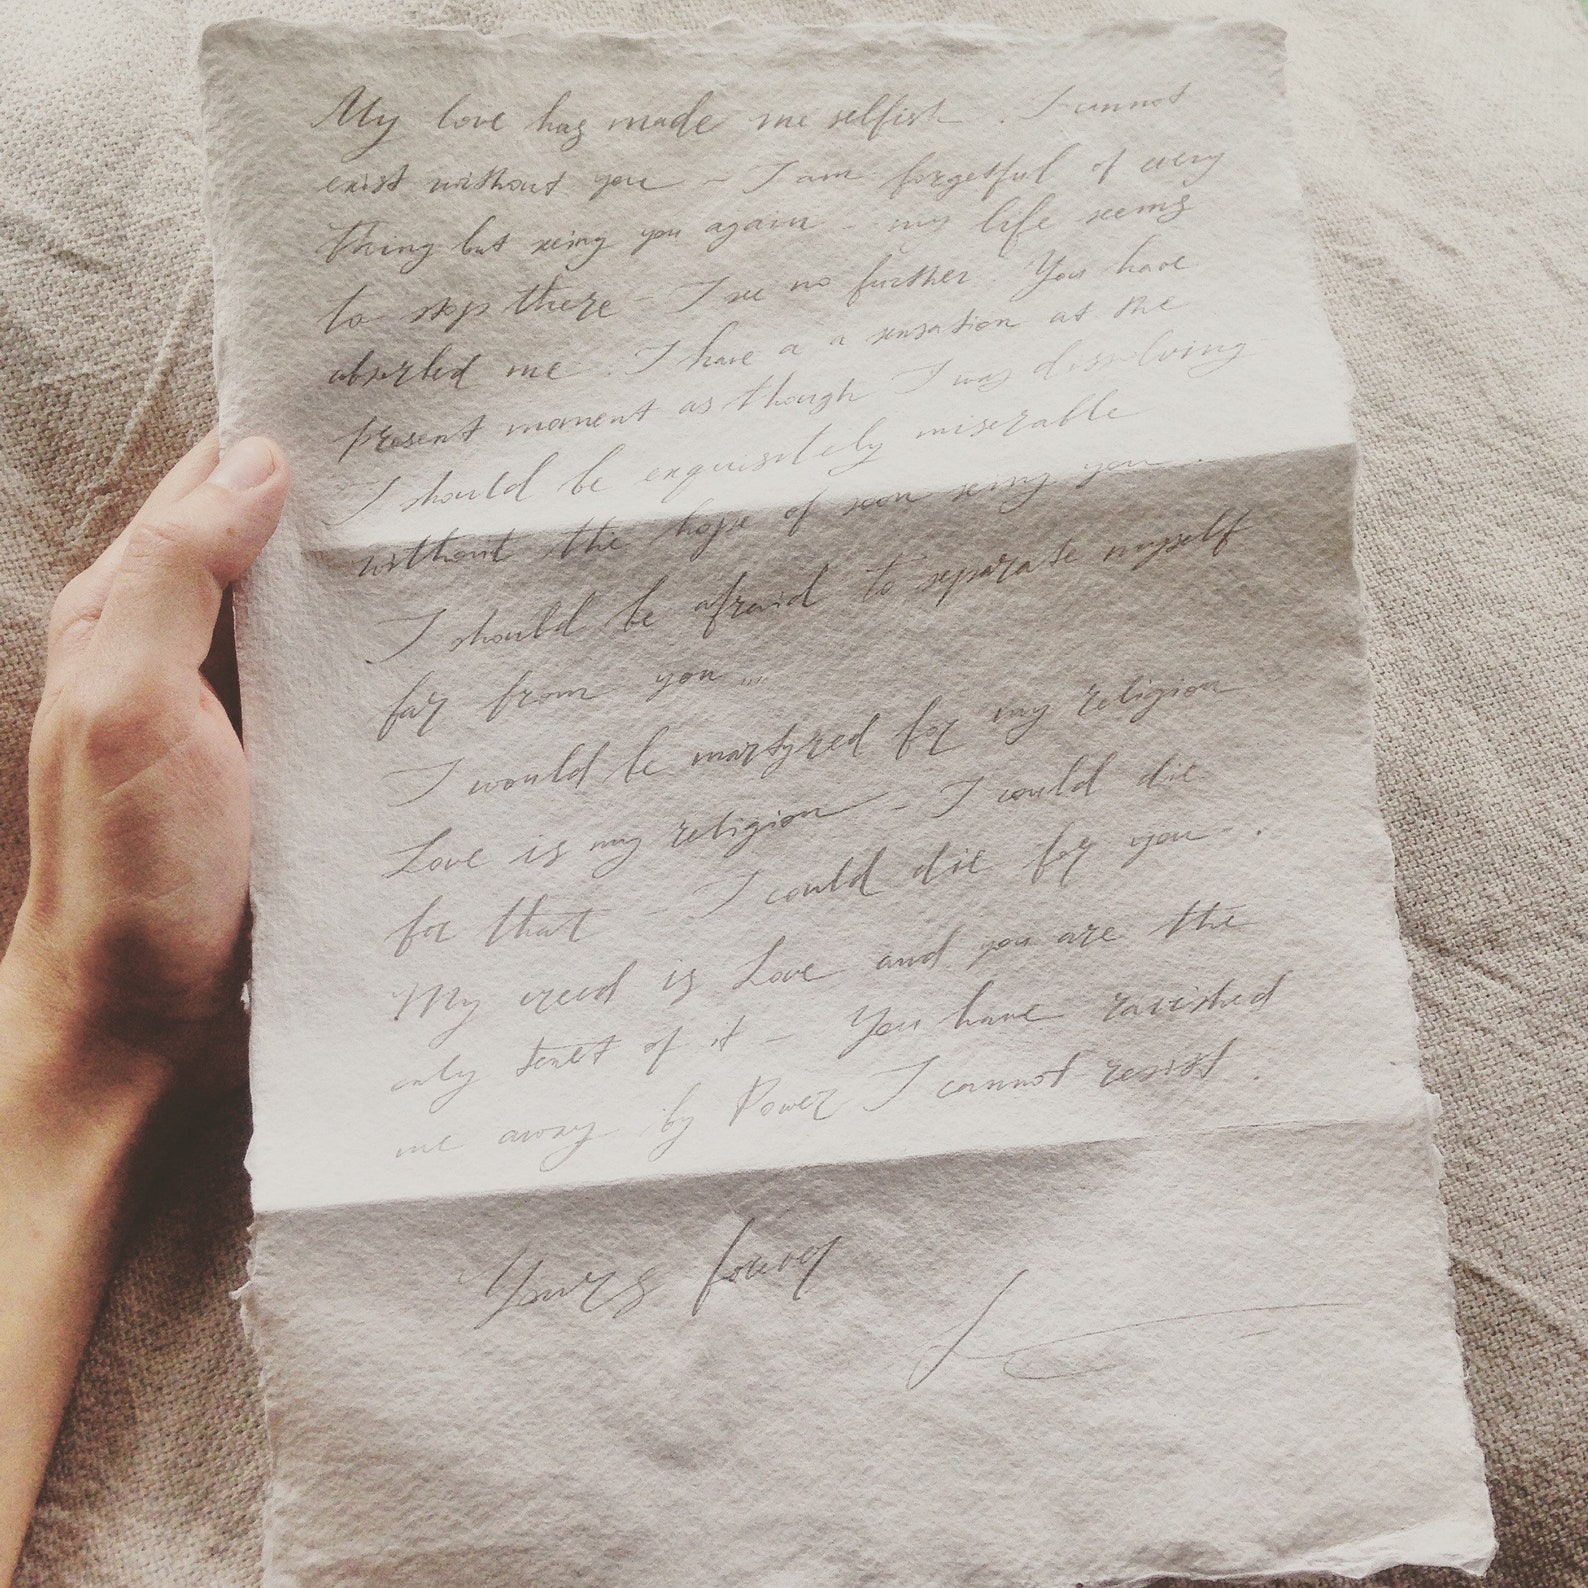 My love has made me selfish. I cannot
exist without you – I am forgetful of every
thing but seing you again – my life seems
to stop there – I see no further. You have
absorbed me. I have a a sensation at the
present moment as though I was dissolving
I should be exquisitely miserable
without the hope of soon seing you.
I should be afraid to separate myself
far from you...
I would be martyred for my religion
Love is my religion – I could die
for that – I could die for you.
My creed is Love and you are the
only tenet of it – You have ravished
me away by Power I cannot resist.
Yours